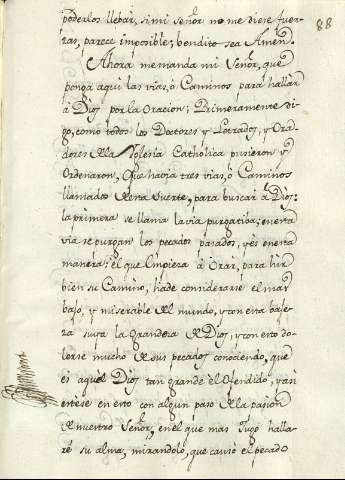 poderlos llebar, si mi señor no me diese fuer-
zas, parece impossible; bendito sea Amen.
88
Ahora me manda mi Señor, que
ponga aqui las vias, ó Caminos para hallar
á Dios por la Oracion; Primeramente di-
go, como todos los Doctores y Letrados, y Ora-
dores de la Iglesia Catholica pusieron y
Ordenaron, Que havia tres vias, ó Caminos
llamados desta suerte, para buscar á Dios:
la primera se llama la via purgatiba; en esta
via se purgan los pecados pasados, y és en esta
manera: él que empieza á Orar, para hir
bien su Camino, hade considerarse el mas
bajo, y miserable del mundo, y con esta baje-
za suya la grandeza de Dios, y con esto do-
lerse mucho de sus pecados conociendo, que
és aquel Dios tan grande el Ofendido, y asi
estese en esto con algun paso de la pasion
de nuestro Señor, en él que mas Jugo halla-
re su alma, mirandolo, que causó el pecado